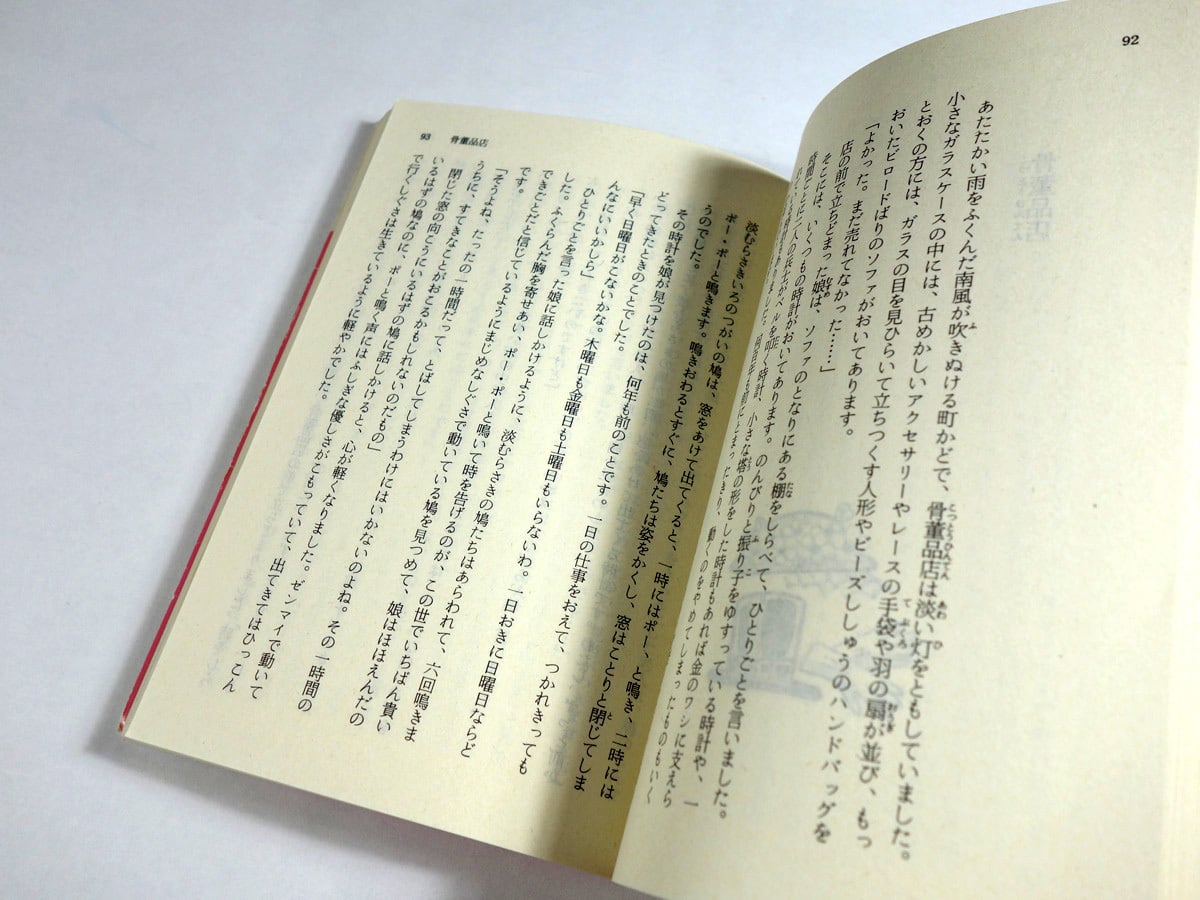 92
あたたかい雨をふくんだ南風が吹きぬける町かどで、骨董品店は淡い灯をともしていました。
小さなガラスケースの中には、古めかしいアクセサリーやレースの手袋や羽の扇が並び、もっ
とおくの方には、ガラスの目を見ひらいて立ちつくす人形やビーズししゅうのハンドバッグを
おいたビロードばりのソファがおいてあります。
「よかった。まだ売れてなかった……」
店の前で立ちどまった娘は、ソファのとなりにある棚をしらべて、ひとりごとを言いました。
そこには、いくつもの時計がおいてあります。のんびりと振り子をゆすっている時計や、一
時間ごとに二人の兵士がベルを叩く時計、小さな塔の形をした時計もあれば金のワシに支えら
何百年も前にとまったきり、動くのをやめてしまったものもいく
93 骨董品店
淡むらさきいろのつがいの鳩は、窓をあけて出てくると、一時にはポー、と鳴き、二時には
ポー・ポーと鳴きます。鳴きおわるとすぐに、鳩たちは姿をかくし、窓はことりと閉じてしま
うのでした。
その時計を娘が見つけたのは、何年も前のことです。一日の仕事をおえて、つかれきっても
どってきたときのことでした。
「早く日曜日がこないかな。木曜日も金曜日も土曜日もいらないわ。一日おきに日曜日ならど
んなにいいかしら」
ひとりごとを言った娘に話しかけるように、淡むらさきの鳩たちはあらわれて、六回鳴きま
した。ふくらんだ胸を寄せあい、ポー・ポーと鳴いて時を告げるのが、この世でいちばん貴い
できごとだと信じているようにまじめなしぐさで動いている鳩を見つめて、娘はほほえんだの
です。
「そうよね、たったの一時間だって、とばしてしまうわけにはいかないのよね。その一時間の
うちに、すてきなことがおこるかもしれないのだもの」
閉じた窓の向こうにいるはずの鳩に話しかけると、心が軽くなりました。ゼンマイで動いて
いるはずの鳩なのに、ポーと鳴く声にはふしぎな優しさがこもっていて、出てきてはひっこん
で行くしぐさは生きているように軽やかでした。